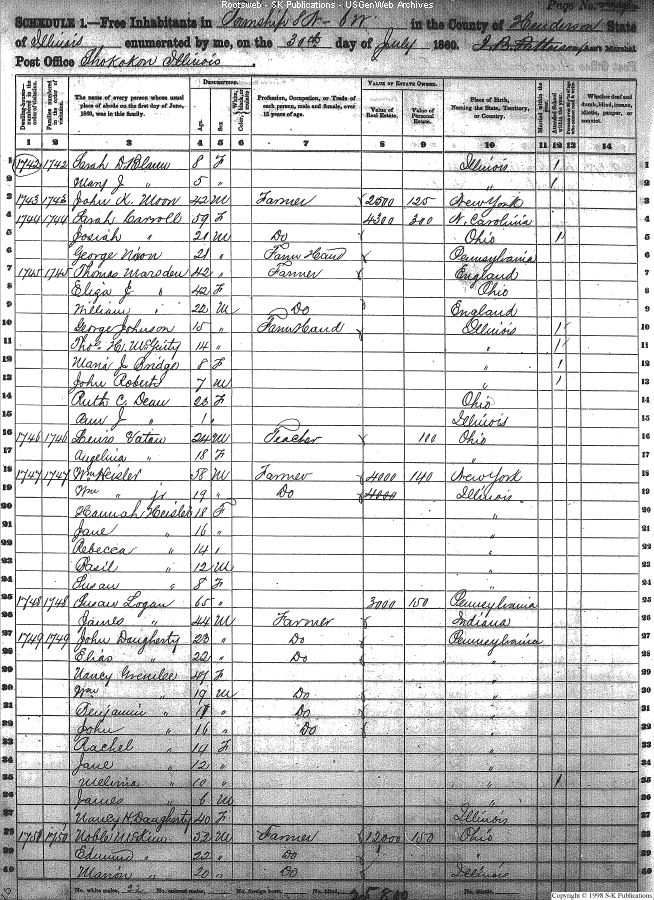 Rootsweb - SK Publications - USGenWeb Archives
Page No.
SCHEDULE 1.—Free Inhabitants in Township 8 N - 6 W in the County of Henderson State
of Illinois enumerated by me, on the 30th day of July 1860. Ass't Marshal
Post Office Shokokon Illinois.
Dwelling-houses— numbered in the order of visitation. Families numbered in the order of visitation. The name of every person whose usual place of abode on the first day of June, 1860, was in this family. DESCRIPTION. Age. Sex. White, black, or mulatto. Color, Profession, Occupation, or Trade of each person, male and female, over 15 years of age. VALUE OF ESTATE OWNED. Value of Real Estate. Value of Personal Estate. Place of Birth, Naming the State, Territory, or Country. Married within the year. Attended School within the year. Whether deaf and dumb, blind, insane, idiotic, pauper, or convict.
1 2 3 4 5 6 7 8 9 10 11 12 13 14
1 1742 1742 Sarah D 8 F Illinois 1
2 Mary J " 5 " " 1
3 1743 1743 John K. Moon 42 M Farmer 2500 125 New York
4 1744 1744 Sarah Carroll 59 F 4300 300 N. Carolina
5 Josiah " 21 M Do Ohio 1
6 George Nixon 21 " Farm Hand Pennsylvania
7 1745 1745 Thomas Marsden 42 " Farmer England
8 Eliza J " 42 F Ohio
9 William " 22 M Do England
10 George Johnson 15 " Farm Hand Illinois 1
11 Thos. H. McGinty 14 " " 1
12 Maria J Bridge 8 F " 1
13 John Roberts 7 M " 1
14 Ruth C. Dean 23 F Ohio
15 Ann J " 1 " Illinois
16 1746 1746 Lewis Vatan 24 M Teacher 100 Ohio
17 Angelina " 18 F "
18 1747 1747 Wm Heisler 58 M Farmer 4000 140 New York
19 Wm " jr 19 " Do 4000 Illinois
20 Hannah Heisler 18 F "
21 Jane " 16 " "
22 Rebecca " 14 " "
23 Basil " 12 M "
24 Susan " 8 F "
25 1748 1748 Susan Logan 65 " 3000 150 Pennsylvania
26 James " 44 M Farmer Indiana
27 1749 1749 John Daugherty 23 " Do Pennsylvania
28 Elias " 22 " Do "
29 Nancy Grenilee 47 F "
30 Wm " 19 M Do "
31 Benjamin " " Do "
32 John " 16 " Do "
33 Rachel " 14 F "
34 Jane " 12 " "
35 Melinia " 10 " " 1
36 James " 6 M "
37 Nancy K. Daugherty 40 F Illinois
38 1750 1750 Noble McKim 52 M Farmer 12000 150 Ohio
39 Edmund " 22 " Do "
40 Marion " 20 " Do Illinois
No. white males, 22 No. colored males, No. foreign born, No. blind, 25800 No. idiotic,
Copyright © 1998 S-K Publications